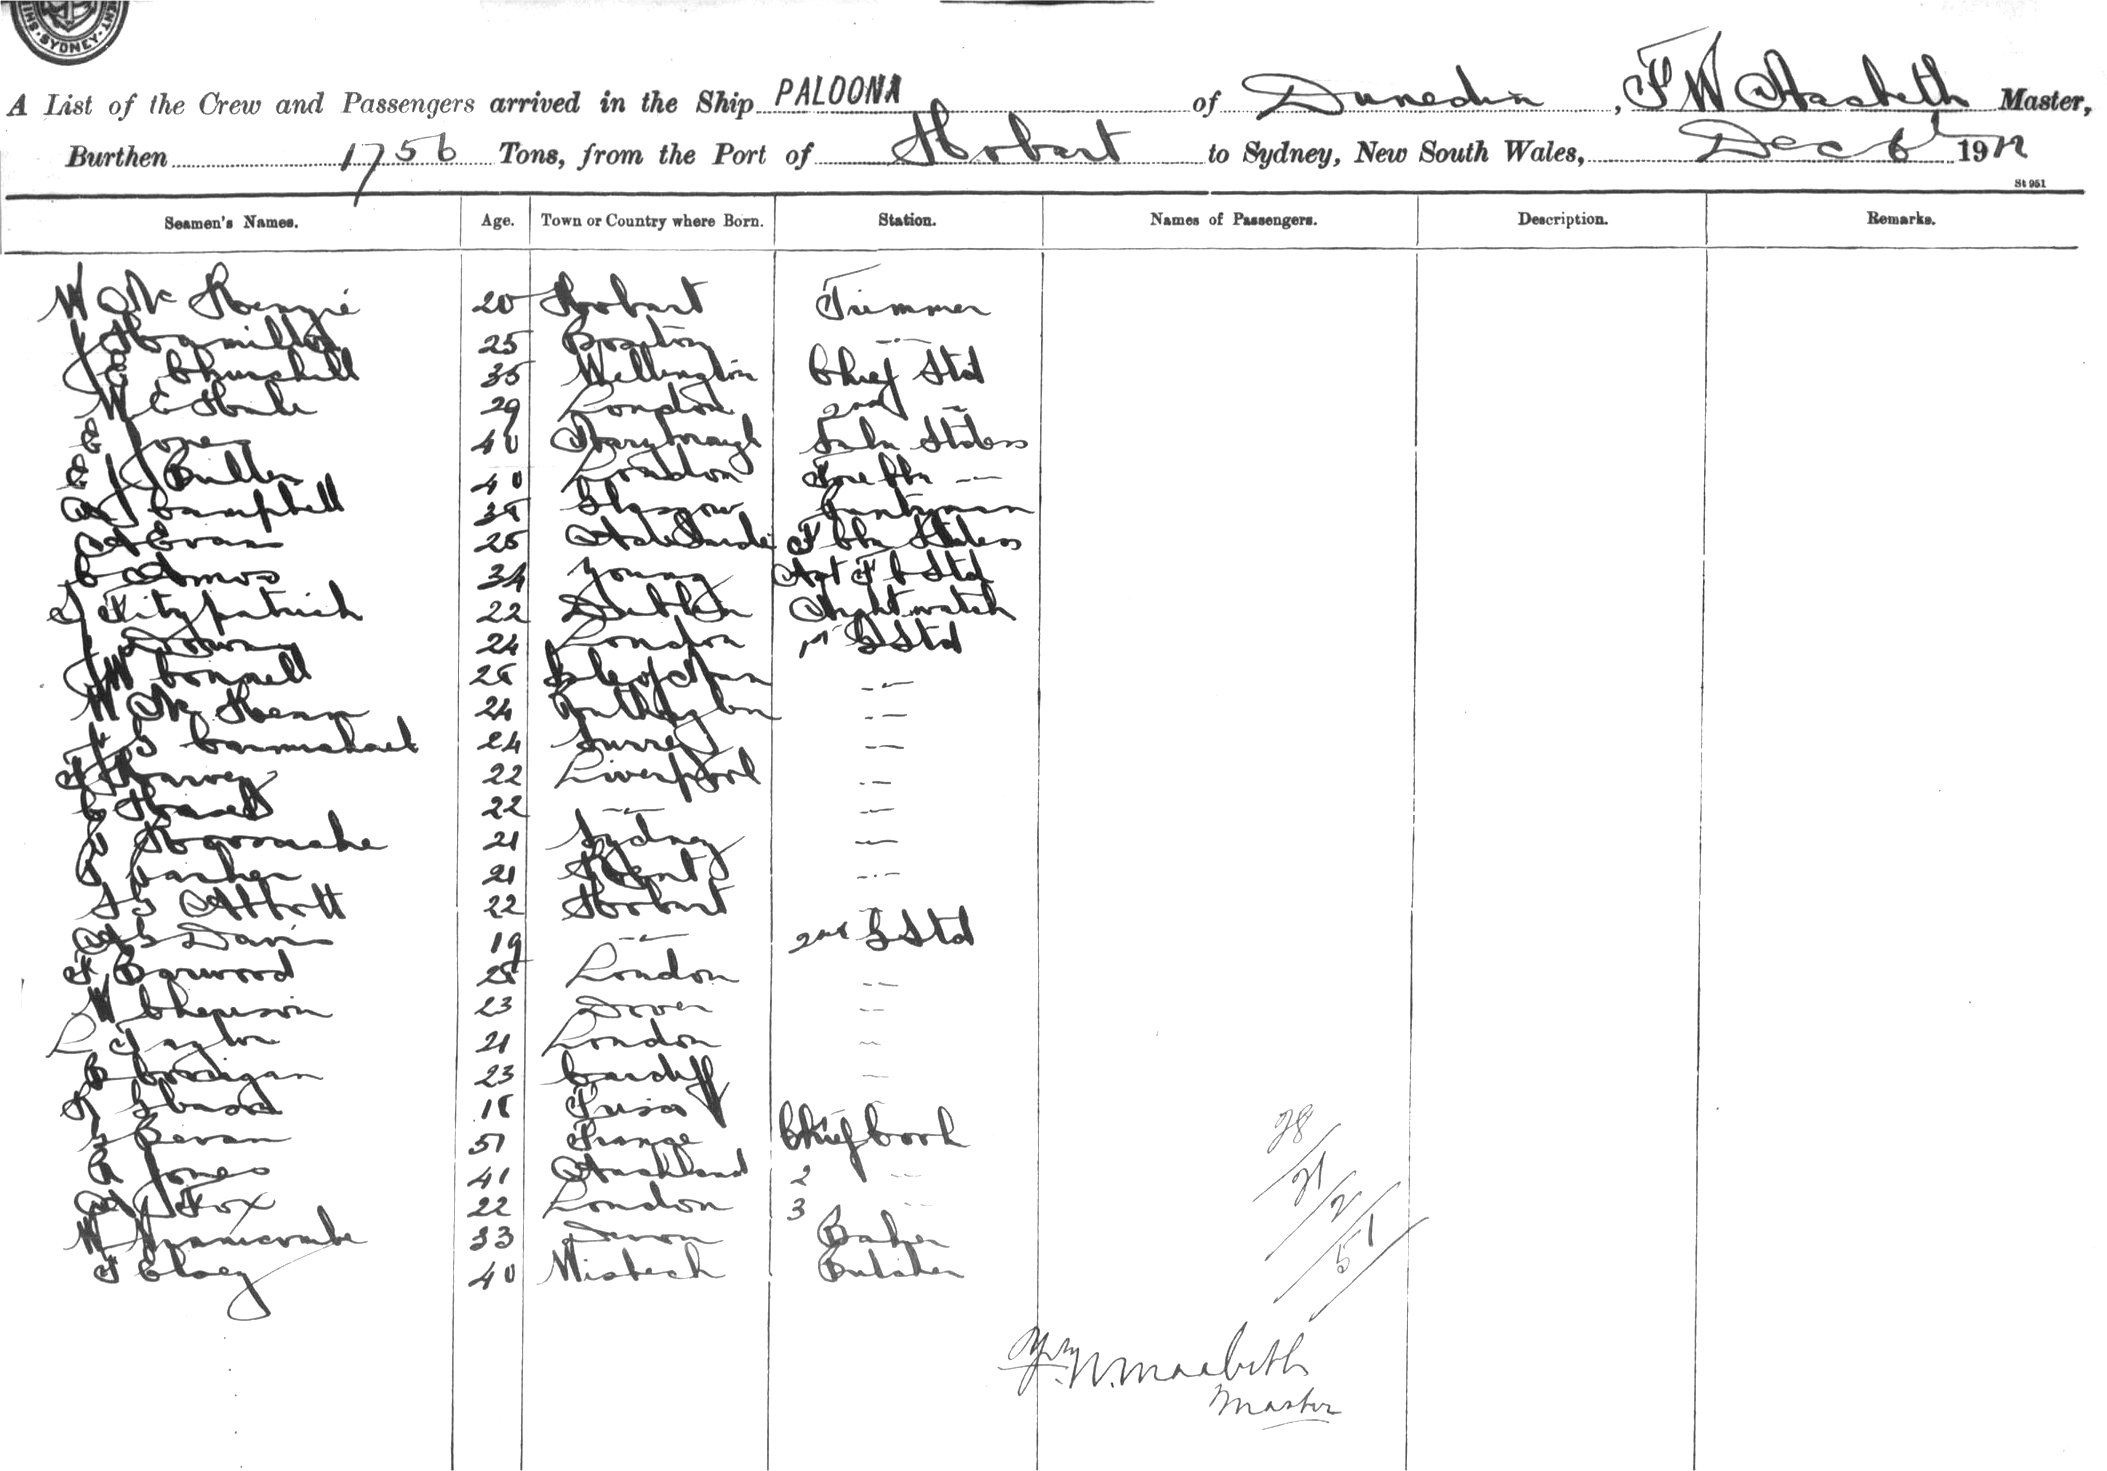 SYDNEY
A List of the Crew and Passengers arrived in the Ship PALOONA of Dunedin, F W Macbeth Master,
Burthen 1756 Tons, from the Port of Hobart to Sydney, New South Wales, Dec 6th 1912
St 951
Seamen's Names. Age. Town or Country where Born. Station. Names of Passengers. Description. Remarks.
W McKenzie 20 Hobart Trimmer
J Hamilton 25 Boston -"-
J E Churchill 35 Wellington Chief Std
W E Hule 29 London 2nd "
E Jones 40 Maryborough Saln Stdess
E J Butler 40 London Fore Cbn "
A J Campbell 38 Glasgow Pantryman
A Evans 25 Adelaide F Cbn Stdess
C Amos 34 Young Asst F C Std
J Fitzpatrick 22 Dublin Nightwatch
J Down 24 London 1st G Std
J W Connell 28 Isle of Man -"-
W McKean 24 -"-
F G Carmichael 24 Surrey -"-
F Harvey 22 Liverpool -"-
C 22 -"- -"-
21 Sydney -"-
J Parker 21 Kent -"-
F G Abbott 22 Hobart -"-
A G Davis 19 -"- 2nd G Std
F Garwood 28 London -"-
W 23 Dover -"-
L Taylor 21 London "
C Corrigan 23 Cardiff "
R 18
J Bevan 51 France Chief Cook
A Jones 41 Auckland 2 "
A J Fox 22 London 3 "
W 33 Devon Baker
F Elsey 40 Wisbech Butcher
28
21
2
51
F. W. Macbeth
Master